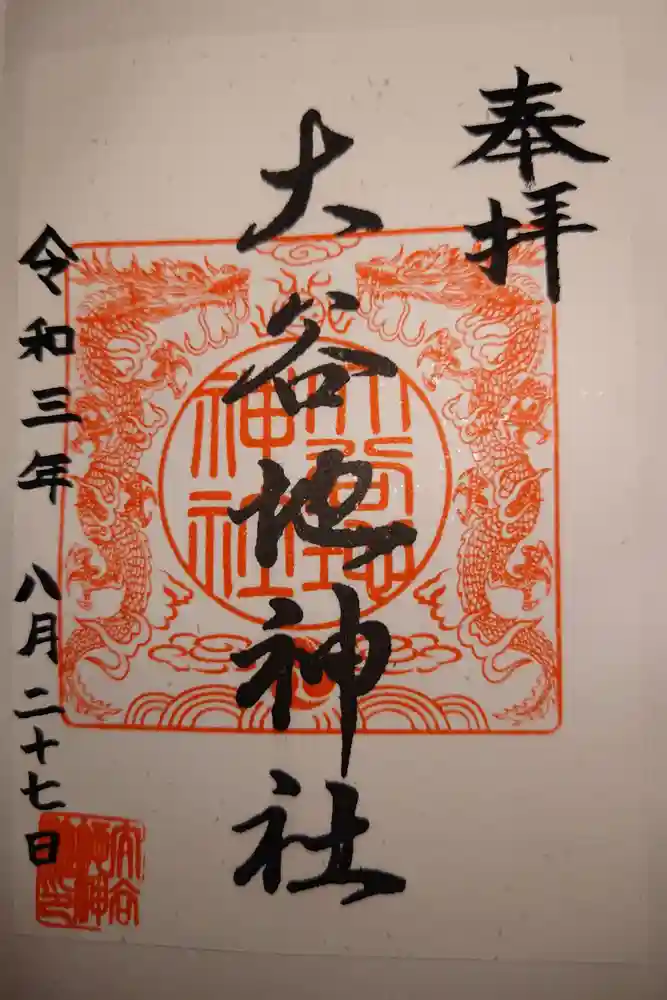 奉拝
大谷地神社
大谷地
神社
令和三年 八月二十七日